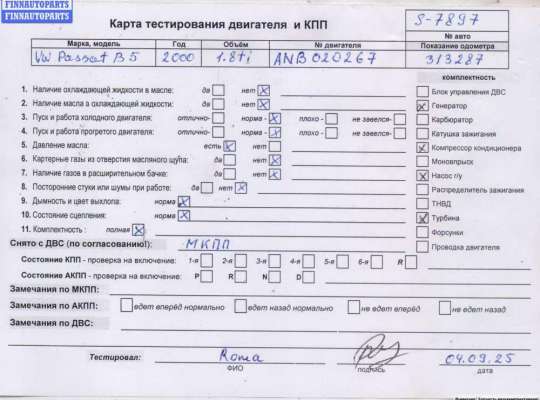 FINNAUTOPARTS
FINNAUTOPARTS
Карта тестирования двигателя и КПП
S-7897
№ авто
Марка, модель Год Объём № двигателя Показание одометра
VW Passat B5 2000 1.8ti ANB020267 313287
комплектность
1. Наличие охлаждающей жидкости в масле: да нет x
2. Наличие масла в охлаждающей жидкости: да нет x
3. Пуск и работа холодного двигателя: отлично- норма - x плохо - не завелся-
4. Пуск и работа прогретого двигателя: отлично- норма - x плохо - не завелся-
5. Давление масла: есть x нет
6. Картерные газы из отверстия масляного щупа: да нет x
7. Наличие газов в расширительном бачке: да нет x
8. Посторонние стуки или шумы при работе: да нет x
9. Дымность и цвет выхлопа: норма x
10. Состояние сцепления: норма x
11. Комплектность : полная x
Блок управления ДВС
x Генератор
Карбюратор
Катушка зажигания
x Компрессор кондиционера
Моновпрыск
x Насос г/у
Распределитель зажигания
ТНВД
x Турбина
Форсунки
Проводка двигателя
Снято с ДВС (по согласованию!): МКПП
Состояние КПП - проверка на включение: 1-я 2-я 3-я 4-я 5-я 6-я R
Состояние АКПП - проверка на включение: P R N D
Замечания по МКПП:
Замечания по АКПП: едет вперёд нормально едет назад нормально не едет вперёд не едет назад
Замечания по ДВС:
Тестировал: Roma 04.09.25
ФИО подпись дата